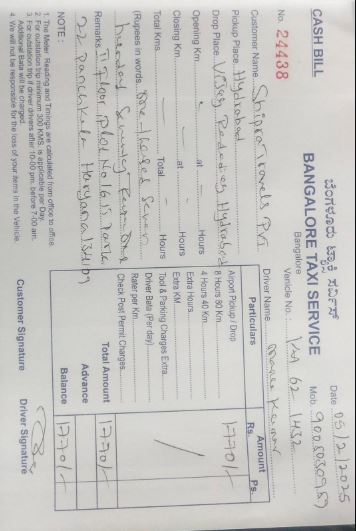 ಬೆಂಗಳೂರು ಟ್ಯಾಕ್ಸಿ ಸರ್ವಿಸ್
CASH BILL
BANGALORE TAXI SERVICE
Bangalore
No. 24438
Date 05/2/2025
Mob. 9008050989
Vehicle No. : KA 62 1432
Customer Name Shipra Travels Pvt
Driver Name Kumar
Pickup Place Hydrabad
Drop Place Hydrabad
Opening Km. at Hours
Closing Km. at Hours
Total Kms. Total Hours
Rupees in words
Remarks Floor Plot No
22 Panchkula Haryana 134109
Particulars Amount
Rs. Ps.
Airport Pickup / Drop 1770/-
8 Hours 80 Km.
4 Hours 40 Km.
Extra Hours
Extra KM
Tool & Parking Charges Extra
Driver Bata (Per day)
Rater per Km.
Check Post Permit Charges
Total Amount 1770/-
Advance
Balance 1770/-
NOTE :
1. The Meter Reading and Timings are calculated from office to office
2. For outstation trip minimum 300 KMS. is applicable per Day.
3. For outstation trip if driver drives after 10-00 pm. before 7-00 am.
Additional Bata will be charged
4. We will not be responsible for the loss of your items in the Vehicle.
Customer Signature Driver Signature